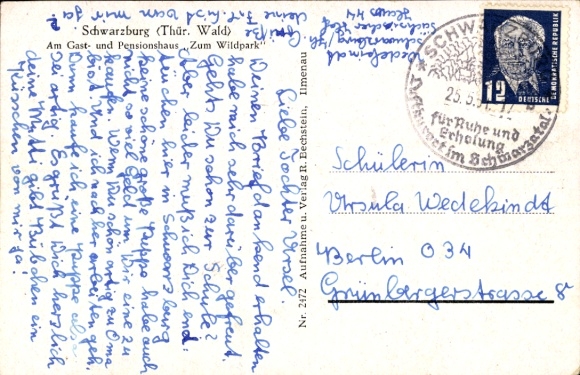 Schwarzburg (Thür. Wald)
Am Gast- und Pensionshaus „Zum Wildpark"
Nr. 2472 Aufnahme u. Verlag R. Bechstein, Ilmenau
Liebe Tochter Ursel.
Deinen Brief dankend erhalten
habe mich sehr darüber gefreut.
Gehst Du schon zur Schule?
Aber leider muß ich Dich ent:
täuschen hier in Schwarzburg
keine schöne große Puppe habe auch
nicht so viel Geld um Dir eine zu
kaufen. Wenn Du schön artig zu Oma
bist und ich nachher arbeiten geh.
Dann kaufe ich eine Puppe also
sei artig. Es grüßt Dich herzlich
deine Mutti gib Bübchen ein
Küßchen von mir ja!
Wedekindt
Schwarzburg/Th.
Haus 44
SCHWARZBURG
25.5.
für Ruhe und
Erholung
im Schwarzatal
12
DEUTSCHE
DEMOKRATISCHE REPUBLIK
Schülerin
Ursula Wedekindt
Berlin O 34
Grünbergerstrasse 8